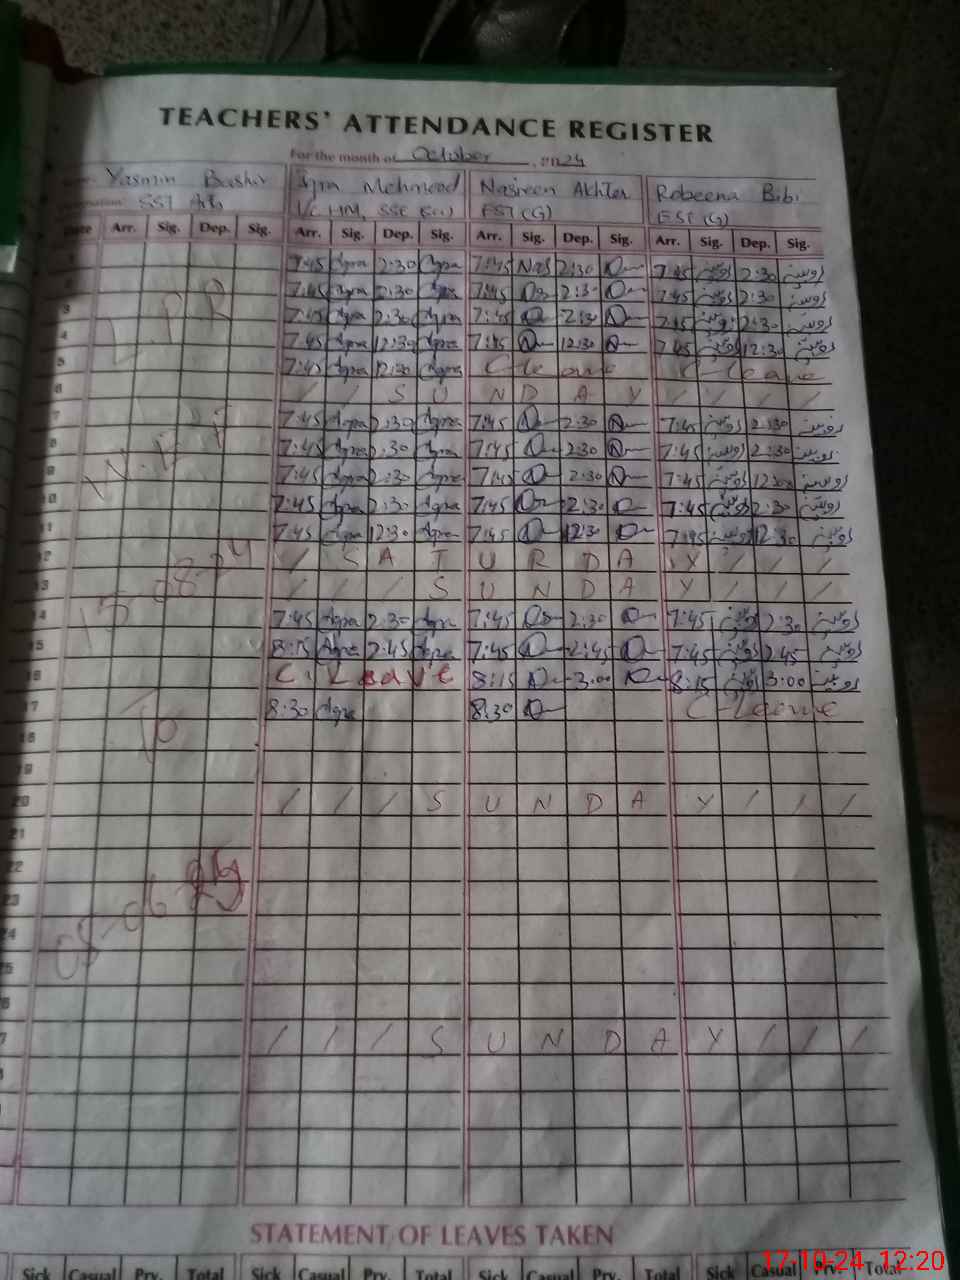 TEACHERS' ATTENDANCE REGISTER
For the month of October 2024
Yasmin Bashir Iqra Mehmood Nasreen Akhter Robeena Bibi
SST Arts I/C HM, SSE (Sci) EST (G) ESE (G)
Date Arr. Sig. Dep. Sig. Arr. Sig. Dep. Sig. Arr. Sig. Dep. Sig. Arr. Sig. Dep. Sig.
7:45 Iqra 2:30 Iqra 7:45 Nas 2:30 7:45 روبینہ 2:30 روبینہ
7:45 Iqra 2:30 Iqra 7:45 2:30 7:45 روبینہ 2:30 روبینہ
3 7:45 Iqra 2:30 Iqra 7:45 2:30 7:45 روبینہ 2:30 روبینہ
4 7:45 Iqra 12:30 Iqra 7:45 12:30 7:45 روبینہ 12:30 روبینہ
5 7:45 Iqra 12:30 Iqra C-leave C-leave
6 / / S U N D A Y / / /
7 7:45 Iqra 2:30 Iqra 7:45 2:30 7:45 روبینہ 2:30 روبینہ
8 7:45 Iqra 2:30 Iqra 7:45 2:30 7:45 روبینہ 2:30 روبینہ
9 7:45 Iqra 2:30 Iqra 7:45 2:30 7:45 روبینہ روبینہ
10 7:45 Iqra 2:30 Iqra 7:45 2:30 7:45 روبینہ 2:30 روبینہ
11 7:45 Iqra 12:30 Iqra 7:45 12:30 7:45 روبینہ 12:30 روبینہ
12 / S A T U R D A Y / / /
13 / / / S U N D A Y / / /
14 7:45 Iqra 2:30 Iqra 7:45 2:30 7:45 روبینہ 2:30 روبینہ
15 8:15 Iqra 2:45 Iqra 7:45 2:45 7:45 روبینہ 2:45 روبینہ
16 C. Leave 8:15 3:00 8:15 روبینہ 3:00 روبینہ
17 8:30 Iqra 8:30 C-Leave
18
19
20 / / / S U N D A Y / / /
21
22
23
24
25
/ / / S U N D A Y / / /
L P R
W.E.F
15-08-24
To
05-06-25
STATEMENT OF LEAVES TAKEN
Sick Casual Prv. Total Sick Casual Prv. Total Sick Casual Prv. Total Sick Casual Prv. Total
17-10-24 12:20